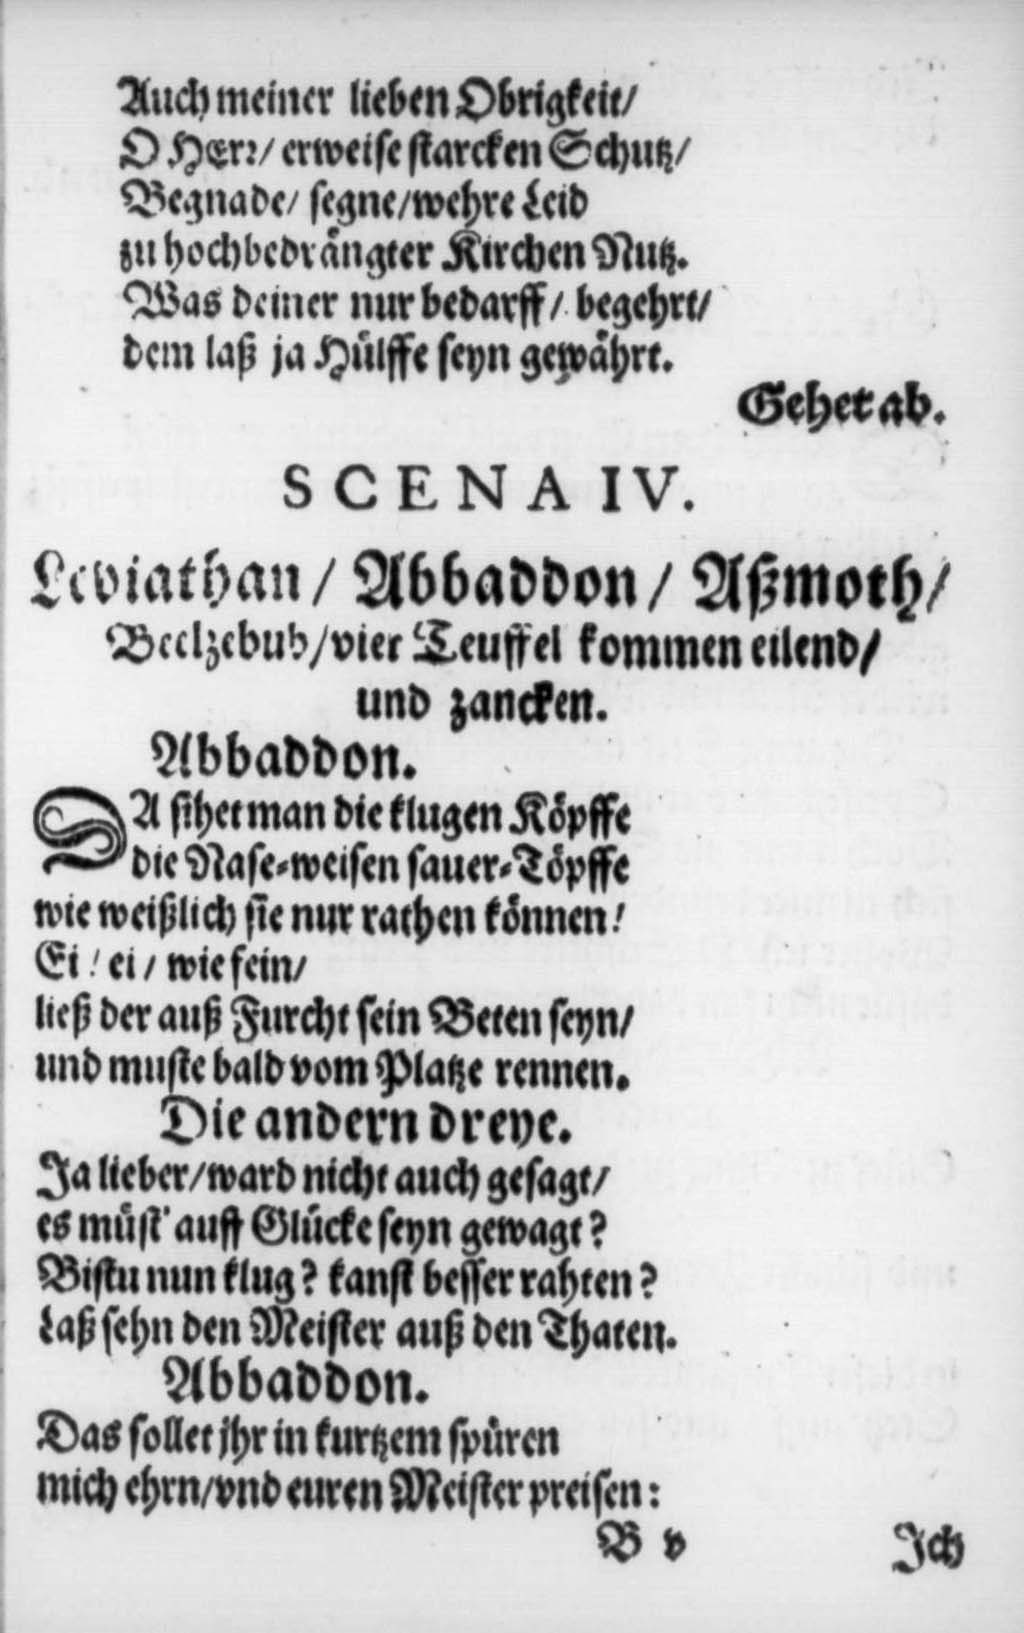 Auch meiner lieben Obrigkeit/
O HErr/ erweise starcken Schutz/
Begnade/ segne/wehre Leid
zu hochbedrängter Kirchen Nutz.
Was deiner nur bedarff/ begehrt/
dem laß ja Hülffe seyn gewährt.
Gehet ab.
SCENA IV.
Leviathan/ Abbaddon/ Aßmoth/
Beelzebub/vier Teuffel kommen eilend/
und zancken.
Abbaddon.
DA sihet man die klugen Köpffe
die Nase-weisen sauer-Töpffe
wie weißlich sie nur rathen können!
Ei! ei/ wie fein/
ließ der auß Furcht sein Beten seyn/
und muste bald vom Platze rennen.
Die andern dreye.
Ja lieber/ward nicht auch gesagt/
es müst' auff Glücke seyn gewagt?
Bistu nun klug? kanst besser rahten?
Laß sehn den Meister auß den Thaten.
Abbaddon.
Das sollet jhr in kurtzem spüren
mich ehrn/vnd euren Meister preisen:
B v Ich